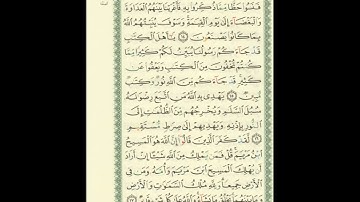 فَنَسُوا۟ حَظًّا مِّمَّا ذُكِّرُوا۟ بِهِۦ فَأَغْرَيْنَا بَيْنَهُمُ ٱلْعَدَاوَةَ
وَٱلْبَغْضَآءَ إِلَىٰ يَوْمِ ٱلْقِيَٰمَةِ وَسَوْفَ يُنَبِّئُهُمُ ٱللَّهُ
بِمَا كَانُوا۟ يَصْنَعُونَ ١٤ يَٰٓأَهْلَ ٱلْكِتَٰبِ
قَدْ جَآءَكُمْ رَسُولُنَا يُبَيِّنُ لَكُمْ كَثِيرًا مِّمَّا
كُنتُمْ تُخْفُونَ مِنَ ٱلْكِتَٰبِ وَيَعْفُوا۟ عَن
كَثِيرٍ قَدْ جَآءَكُم مِّنَ ٱللَّهِ نُورٌ وَكِتَٰبٌ
مُّبِينٌ ١٥ يَهْدِى بِهِ ٱللَّهُ مَنِ ٱتَّبَعَ رِضْوَٰنَهُۥ
سُبُلَ ٱلسَّلَٰمِ وَيُخْرِجُهُم مِّنَ ٱلظُّلُمَٰتِ إِلَى
ٱلنُّورِ بِإِذْنِهِۦ وَيَهْدِيهِمْ إِلَىٰ صِرَٰطٍ مُّسْتَقِيمٍ
١٦ لَّقَدْ كَفَرَ ٱلَّذِينَ قَالُوٓا۟ إِنَّ ٱللَّهَ هُوَ ٱلْمَسِيحُ
ٱبْنُ مَرْيَمَ قُلْ فَمَن يَمْلِكُ مِنَ ٱللَّهِ شَيْـًٔا إِنْ أَرَادَ
أَن يُهْلِكَ ٱلْمَسِيحَ ٱبْنَ مَرْيَمَ وَأُمَّهُۥ وَمَن فِى
ٱلْأَرْضِ جَمِيعًا وَلِلَّهِ مُلْكُ ٱلسَّمَٰوَٰتِ وَٱلْأَرْضِ
وَمَا بَيْنَهُمَا يَخْلُقُ مَا يَشَآءُ وَٱللَّهُ عَلَىٰ كُلِّ شَىْءٍ قَدِيرٌ ١٧